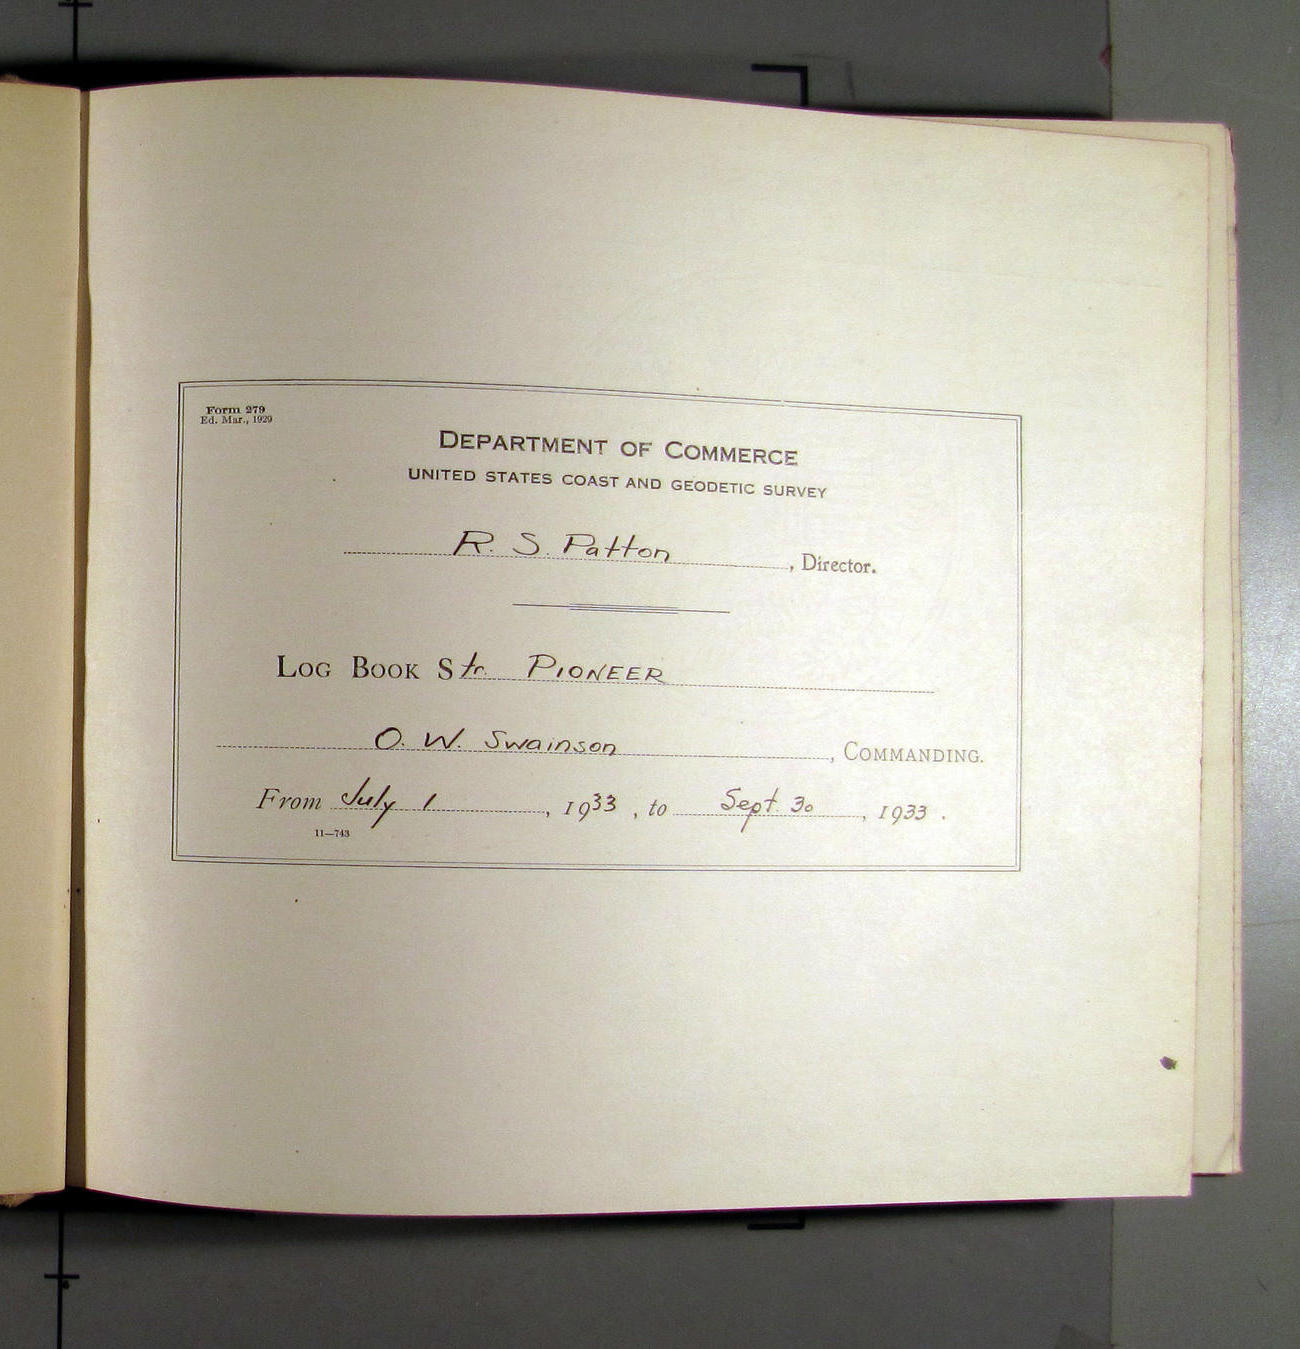 Form 279
Ed. Mar., 1929
DEPARTMENT OF COMMERCE
UNITED STATES COAST AND GEODETIC SURVEY
R. S. Patton, Director.
LOG BOOK Str. PIONEER
O. W. Swainson, COMMANDING.
From July 1, 1933, to Sept. 30, 1933.
11—743